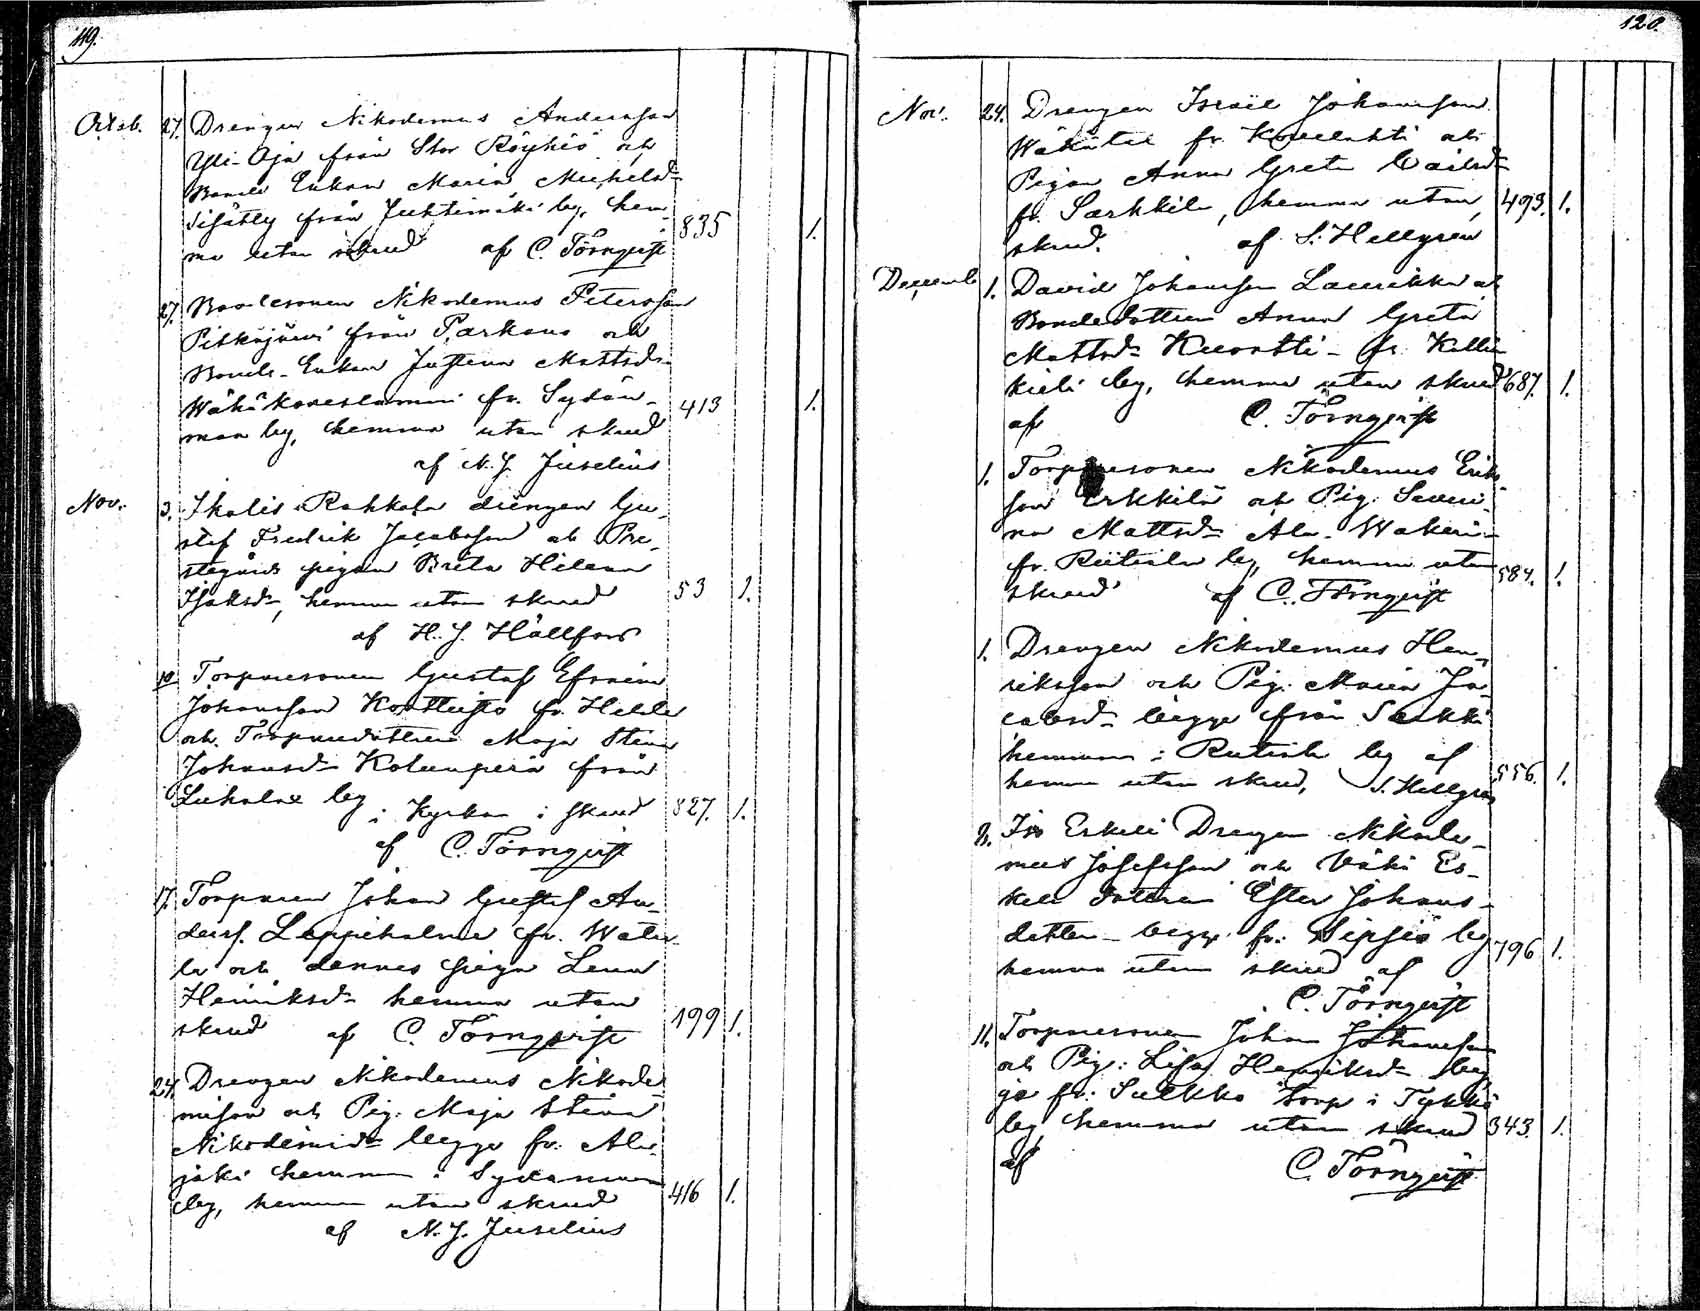 119.
Octob. 27. Drengen Nikodemus Andersson
Yli-Oja från Stor Röyhiö och
Bonde Enkan Maria Michelsd-
från Juhtimäki by, hem-
ma utan skrud af C. Törnqvist 835 1.
27. Bondesonen Nikodemus Petersson
Pitkäjärvi från Parkano och
Bonde-Enkan Justina Mattsd-
Wähäkoveslammi fr. Sydän-
maa by, hemma utan skrud 413 1.
af N. J. Juselius
Nov. 3. Ikalis Rahkola drengen Gu-
staf Fredrik Jacobsson och Pre-
stegårds pigan Brita Helena
Isaksd-, hemma utan skrud 53 1.
af H. J. Hällfors
10. Torparesonen Gustaf Efraim
Johansson Kortteisto fr. Heble
och Torparedottren Maja Stina
Johansd- Kolunperä från
Luhalax by i Kyrkan i skrud 827. 1.
af C. Törnqvist
17. Torparen Johan Gustaf An-
derss. Leppihalme fr. Watu-
la och dennes piga Lena
Henriksd- hemma utan
skrud af C. Törnqvist 199 1.
24. Drengen Nikodemus Nikode-
musson och Pig. Maja Stina
Nikodemid- begge fr. Ala-
jäki hemman i Sydänmaa
by, hemma utan skrud 416 1.
af N. J. Juselius
120.
Nov. 24. Drengen Israel Johansson
fr. Kovelahti och
Pigan Anna Greta Carlsd-
fr. Särkkilä, hemma utan 493. 1.
skrud. af S. Hellgren
Decemb 1. David Johansson Laurikka och
Bondedottren Anna Greta
Mattsd- Kuortti- fr. Kallin
kieli by, hemma utan skrud 687. 1.
af C. Törnqvist
1. Torparesonen Nikodemus Eriks-
son Erkkilä och Pig. Severi-
na Mattsd- Ala-Wakeri-
fr. Riitiala by, hemma utan 584. 1.
skrud af C. Törnqvist
1. Drengen Nikodemus Hen-
riksson och Pig. Maria Ja-
cobsd- begge från Särkkä
hemman i Rutiala by af 556. 1.
hemma utan skrud, S. Hellgren
8. Iso Eskeli Drengen Nikode-
mus Josefsson och Vähä Es-
keli dottren Ester Johans-
dotter- begge fr. Sipsiö by 796 1.
hemma utan skrud af
C. Törnqvist
11. Torparesonen Johan Johansson
och Pig: Lisa Henriksd- beg
ge fr: Sulkko torp i Tykkö
by hemma utan skrud 343. 1.
af C. Törnqvist